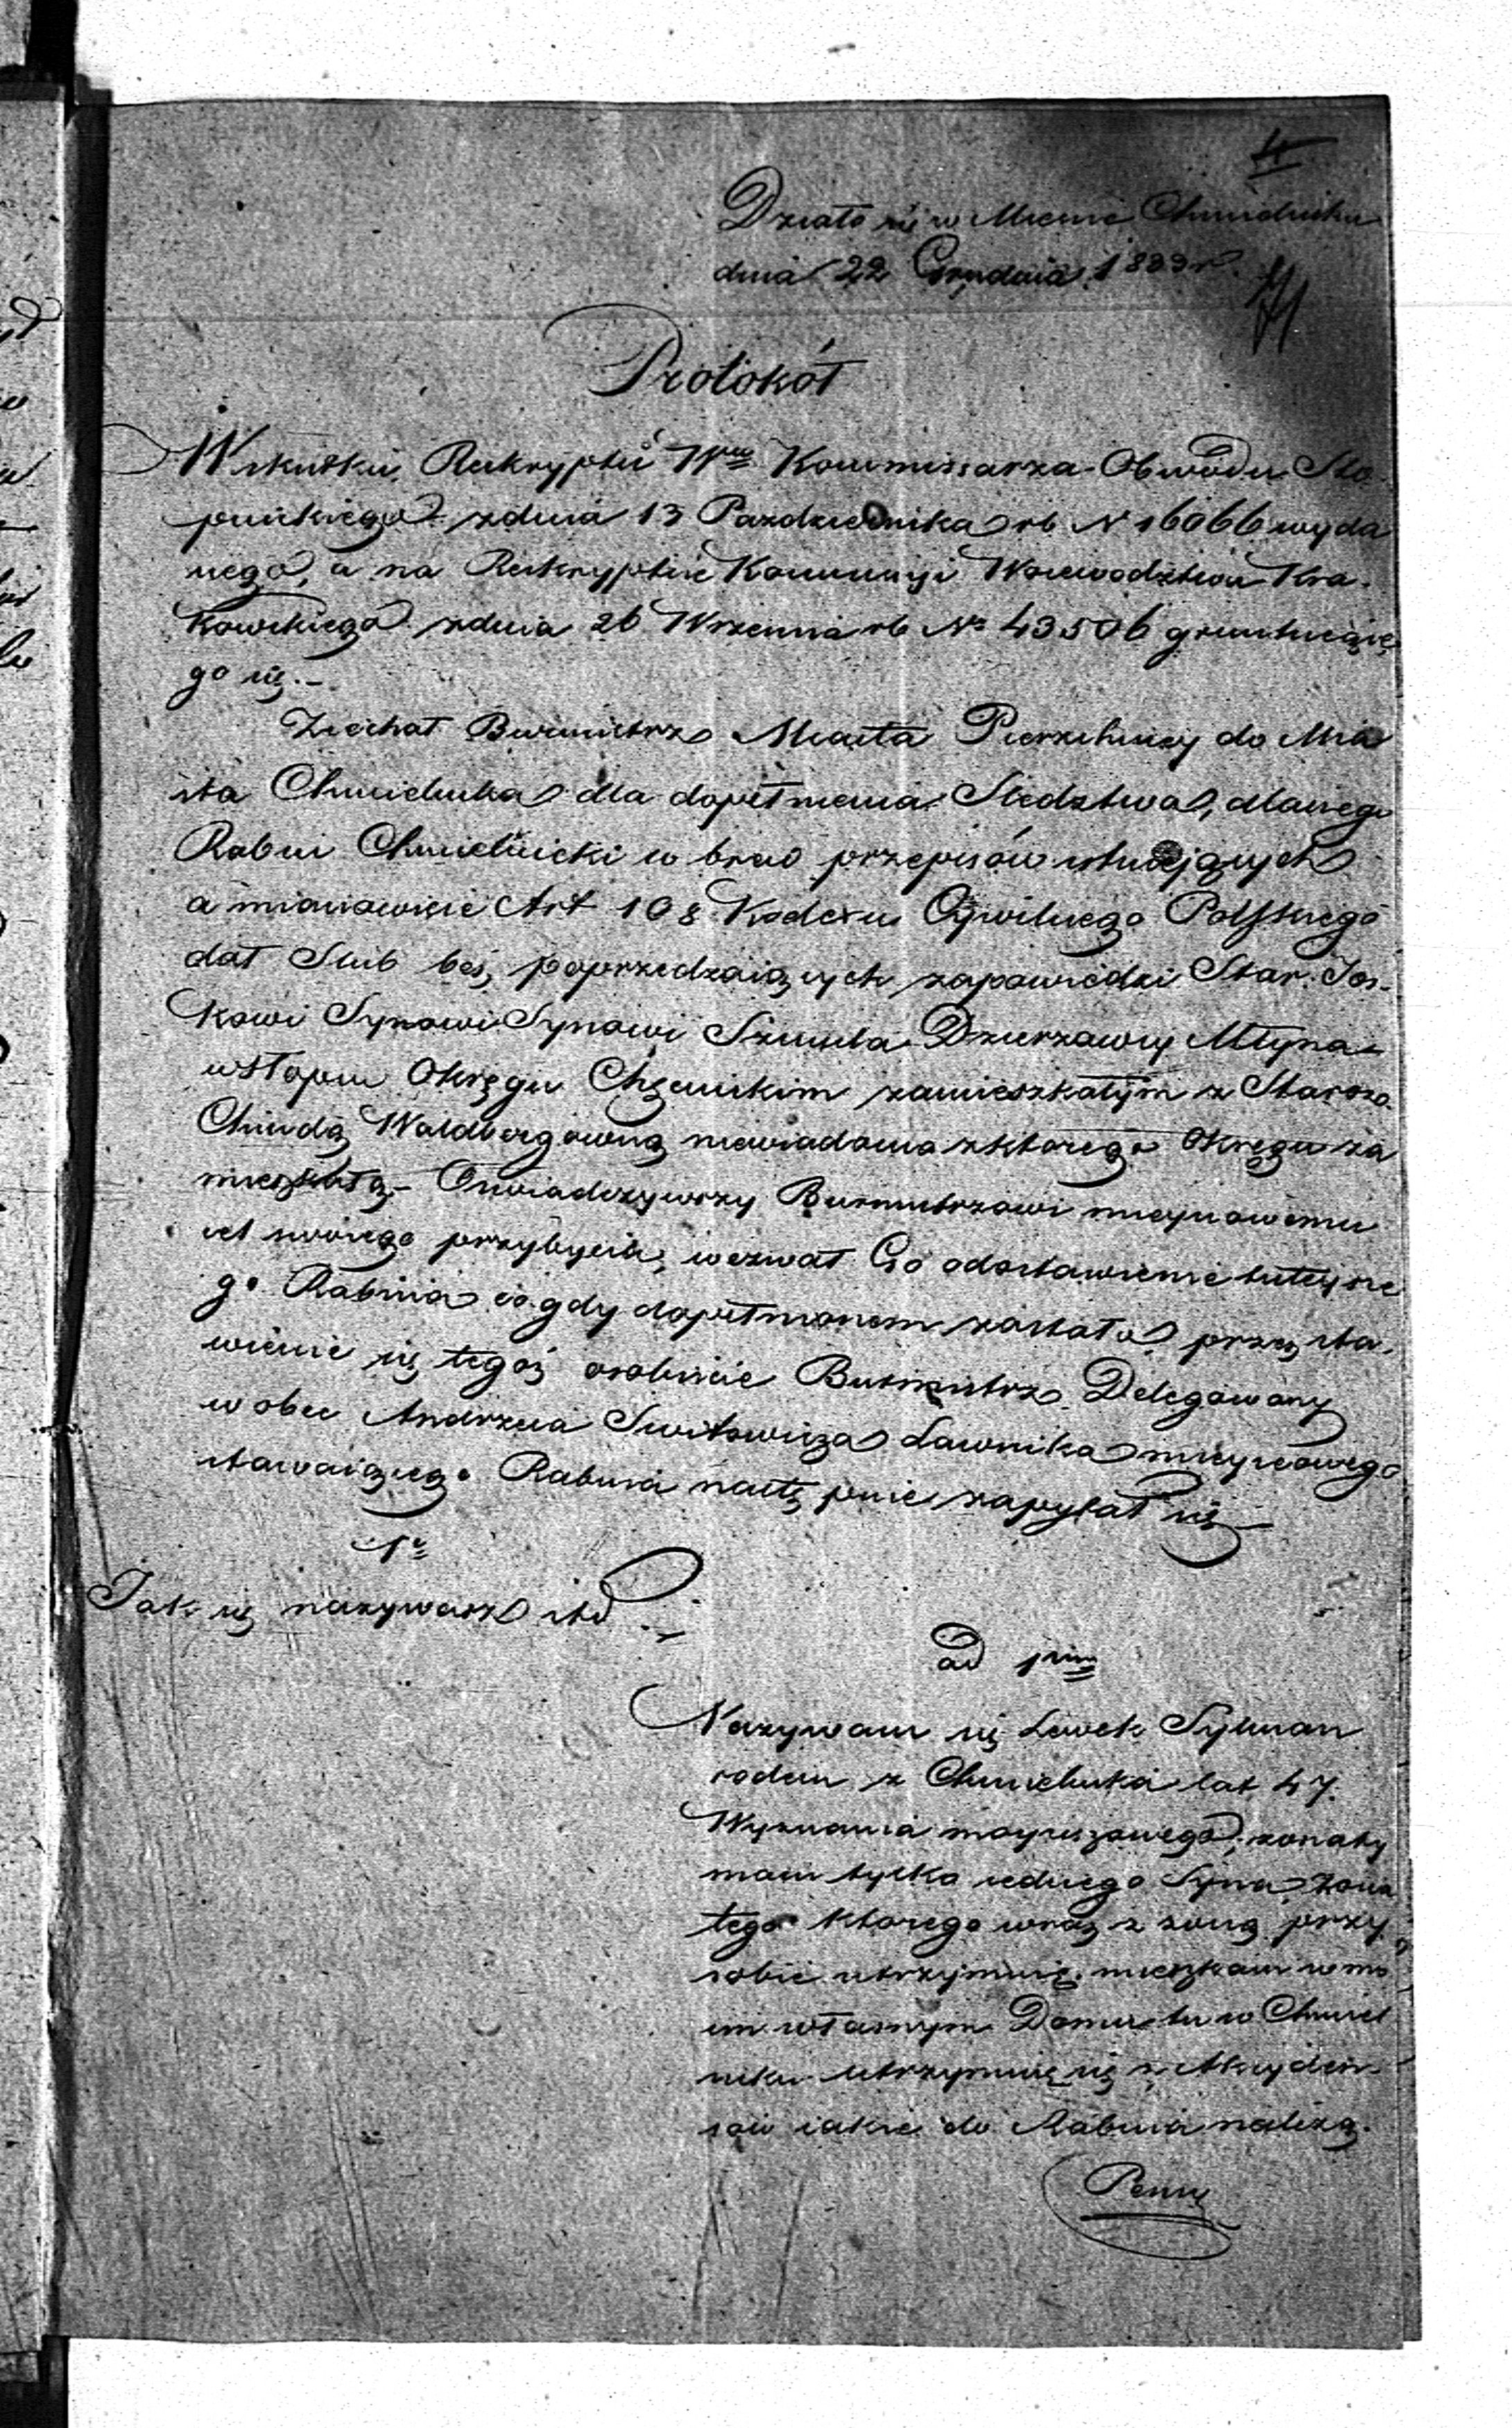 4
Działo się w Miescie Chmielniku
dnia 22 Grudnia 1833 r.
Protokół
W skutku Reskryptu W<sup>go</sup> Kommissarza Obwodu Sto
pnickiego z dnia 13 Pazdziernika rb N 16066 wyda
nego, a na Reskrypcie Kommisyi Woiewodztwa Kra-
kowskiego z dnia 26 Wrzesnia rb N<sup>o</sup> 43506 gruntuiące
go się.-
Ziechał Burmistrz Miasta Pierzchnicy do Mia
sta Chmielnika dla dopełnienia Sledztwa, dlaczego
Rabin Chmielnicki w brew przepisów istniejących
a mianowicie Art 108 Kodexu Cywilnego Polskiego
dał Slub bez poprzedzaiących zapowiedzi Star. Jos-
kowi Synowi Synowi Szmula Dzierzawcy Młyna
w Stopcu Okręgu Chęcinskim zamieszkałym z Starsza.
Chindą Waldbergowną niewiadoma z ktorego Okręgu za
mieszkałą - Oswiadczywszy Burmistrzowi mieyscowemu
cel swoiego przybycia, wezwał Go o dostawienie tuteysze
go Rabina co gdy dopełnionem zostało przez sta-
wienie się tegoż osobiscie Burmistrz Delegowany
w obec Andrzeia Switowicza Ławnika mieyscowego
stawaiącego Rabina następnie zapytał się
1<sup>o</sup>
Jak się nazywasz itd
ad prim
Nazywam się Lewek Sylman
rodem z Chmielnika lat 47.
Wyznania moyzeszowego, zonaty
mam tylko iednego Syna Zona
tego ktorego wraz z zoną przy
sobie utrzymuię. mieszkam w mo
im własnym Domu tu w Chmiel
niku utrzymuię się z Akcyden
sow iakie do Rabina nalezą.